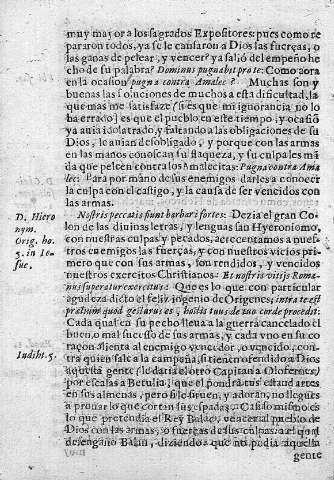 muy mayor a los sagrados Expositores: pues como re
pararon todos, ya se le cansaron a Dios las fuerças, o
las ganas de pelear, y vencer? ya salió del empeño he
cho de su palabra? Dominus pugnabit pro te: Como aora
en la ocasion pugna contra Amalec? Muchas son y
buenas las soluciones de muchos a esta dificultad, la
que mas me satisface (si es que mi ignorancia no lo
ha errado) es que el pueblo en este tiempo, y ocasiõ
ya auia idolatrado, y faltando a las obligaciones de su
Dios, le auian desobligado, y porque con las armas
en las manos conoscan su flaqueza, y su culpa les mã
da que peleen contra los Amalecitas: Pugna contra Ama
lec: Para por mano de sus enemigos darles a conocer
la culpa con el castigo, y la causa de ser vencidos con
las armas.
D. Hiero
nym.
Orig. ho.
5. in Io-
sue.
Nostris peccatis sunt barbari fortes: Dezia el gran Co-
len de las diuinas letras, y lenguas san Hyeronimo,
con nuestras culpas y pecados, acrecentamos a nues-
tros enemigos la fuerças, y con nuestros vicios pri-
mero que con sus armas, son rendidos, y vencidos
nuestros exercitos Christianos: Et nostris vitijs Roma-
nus superatur exercitus: Que es lo que con particular
agudeza dicto el feliz ingenio de Origenes; intra te est
prælium quod gesturus es, hostis tuus de tuo corde procedit:
Cada qual en su pecho lleua a la guerra cancelado el
buen, o mal sucesso de sus armas, y cada vno en su co
raçon alienta al enemigo vencedor, o vencido, con-
Iudiht. 5.
tra quien sale a la campaña, si tienen ofendido a Dios
aquesta gente (le daria el otro Capitan a Olofernes)
por escalas a Betulia, que el pondra tus estandartes
en sus almenas, pero si le siruen, y adoran, no llegues
a prouar lo que corten sus espadas. Casi lo mismo es
lo que pretendia el Rey Balac, vencer al pueblo de
Dios con las armas, o fuerças de sus culpas: a el qual
desengaño Balan, diziendo que no podia aquella
gente